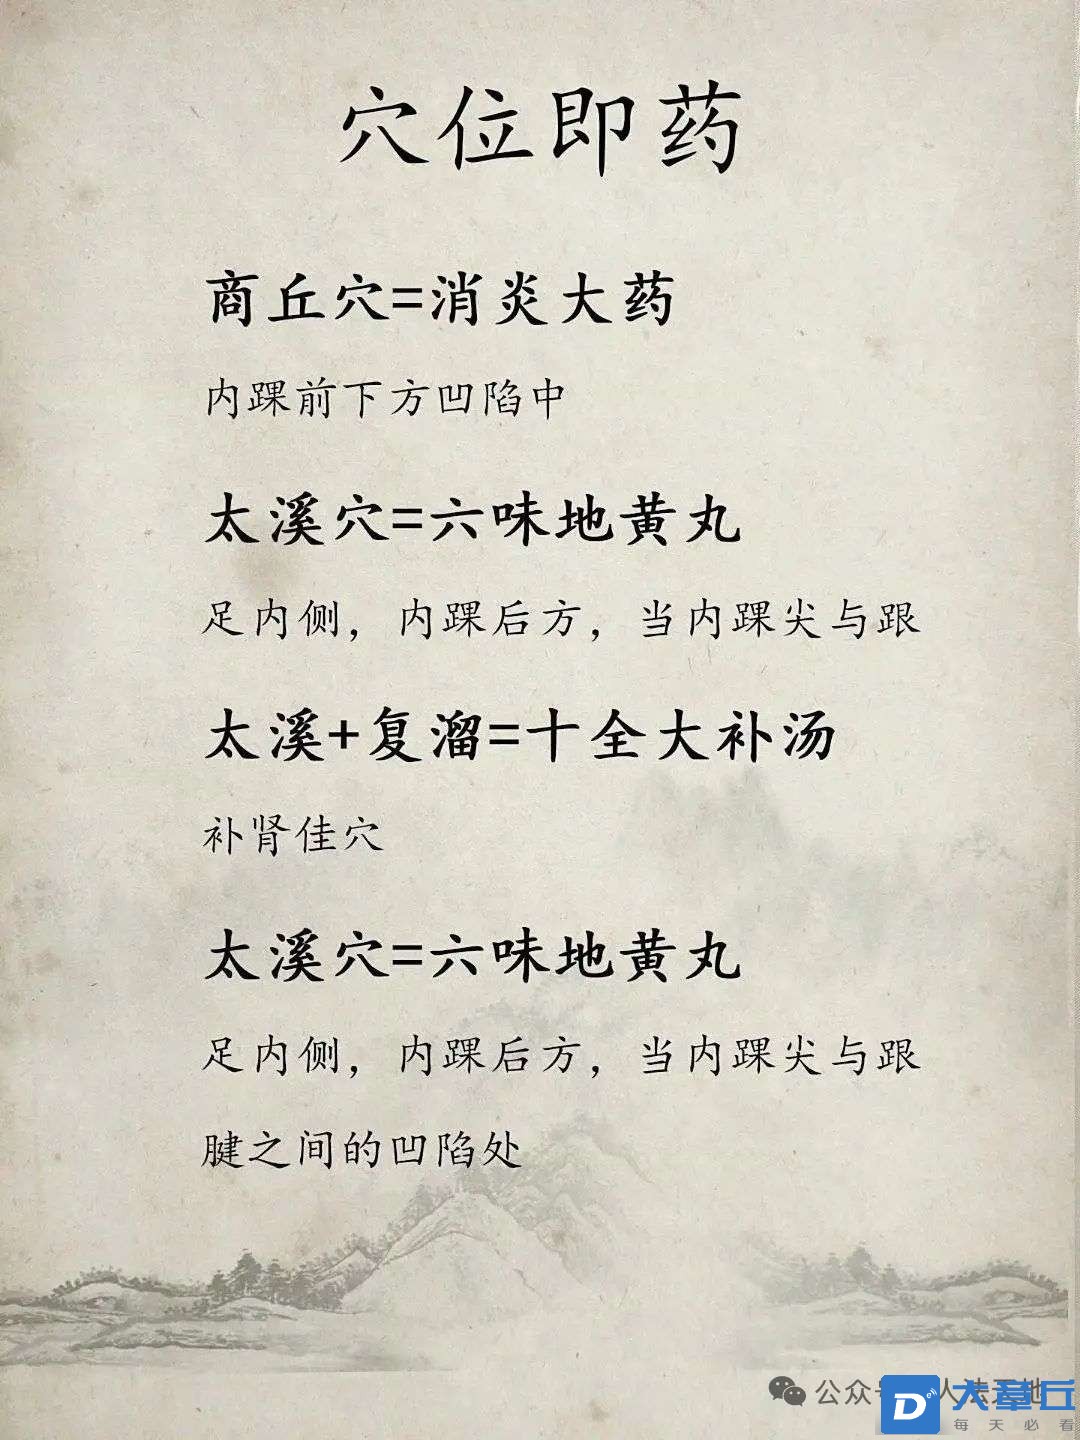 穴位即药
商丘穴=消炎大药
内踝前下方凹陷中
太溪穴=六味地黄丸
足内侧，内踝后方，当内踝尖与跟
太溪+复溜=十全大补汤
补肾佳穴
太溪穴=六味地黄丸
足内侧，内踝后方，当内踝尖与跟
腱之间的凹陷处
公众
人法
地
大章丘
每天必看